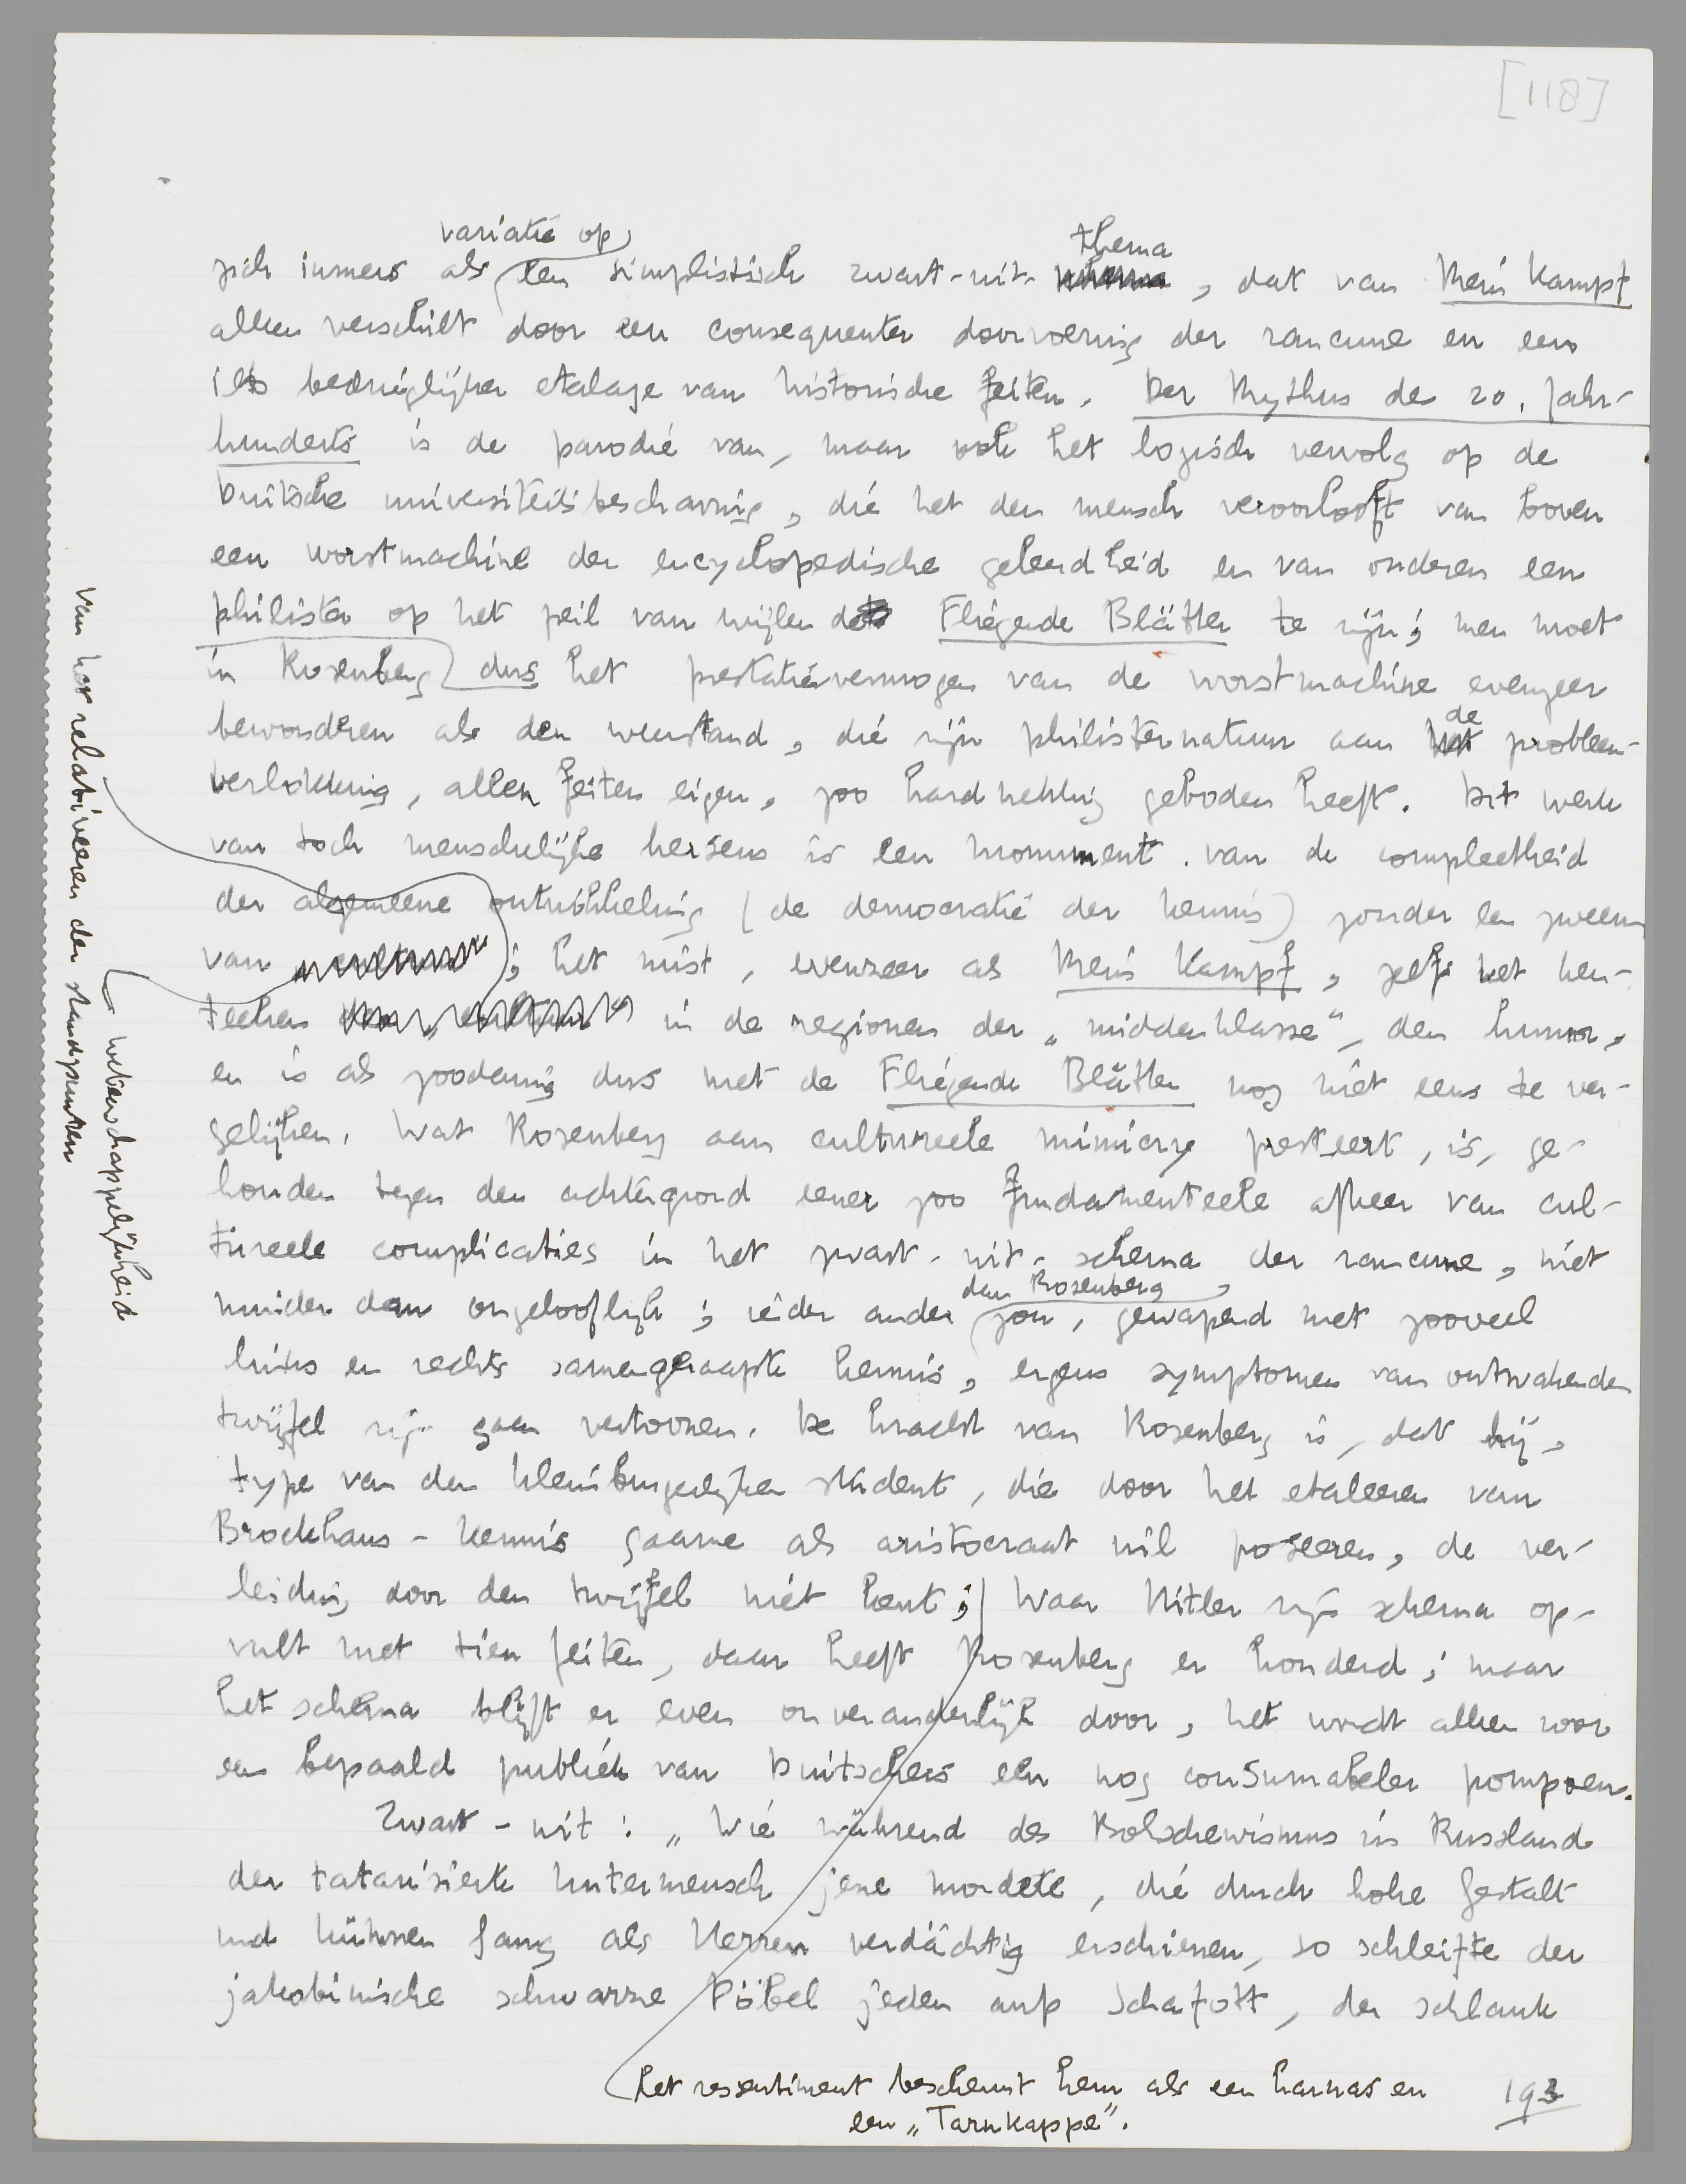 [118]
variatie op
zich immers als een simplistisch zwart-wit- thema
, dat van Mein Kampf
alleen verschilt door een consequenter doorvoering der rancune en een
iets bedrieglijker etalage van historische feiten. Der Mythus des 20. Jahr-
hunderts is de parodie van, maar ook het logisch vervolg op de
Duitsche universiteitsbeschaving, die het den mensch veroorlooft van boven
een worstmachine der encyclopedische geleerdheid en van onderen een
philister op het peil van wijlen de Fliegende Blätter te zijn; men moet
in Rosenberg dus het prestatievermogen van de worstmachine evenzeer
bewonderen als den weerstand, die zijn philisternatuur aan de probleem-
verlokking, allen feiten eigen, zoo hardnekkig geboden heeft. Dit werk
van toch menschelijke hersens is een monument van de compleetheid
der algemeene ontwikkeling (de democratie der kennis) zonder een zweem
van ; het mist, evenzeer als Mein Kampf, zelfs het ken-
teeken in de regionen der „middenklasse", den humor,
en is als zoodanig dus met de Fliegende Blätter nog niet eens te ver-
gelijken. Wat Rosenberg aan cultureele mimicry presteert, is, ge-
houden tegen den achtergrond eener zoo fundamenteele afkeer van cul-
tureele complicaties in het zwart-wit-schema der rancune, niet
minder dan ongelooflijk; ieder ander dan Rosenberg zou, gewapend met zooveel
links en rechts samengeraapte kennis, ergens symptomen van ontwakenden
twijfel zijn gaan vertoonen. De kracht van Rosenberg is, dat hij,
type van den kleinburgerlijken student, die door het etaleeren van
Brockhaus-kennis gaarne als aristocraat wil poseeren, de ver-
leiding door den twijfel niet kent; Waar Hitler zijn schema op-
vult met tien feiten, daar heeft Rosenberg er honderd; maar
het schema blijft er even onveranderlijk door, het wordt alleen voor
een bepaald publiek van Duitschers een nog consumabeler pompoen.
Zwart-wit: „Wie während des Bolschewismus in Russland
der tatarisierte Untermensch jene mordete, die durch hohe Gestalt
und kühnen Gang als Herren verdächtig erschienen, so schleifte der
jakobinische schwarze Pöbel jeden aufs Schafott, der schlank
het ressentiment beschermt hem als een harnas en
een „Tarnkappe".
193
van het relativeeren der standpunten
wetenschappelijkheid